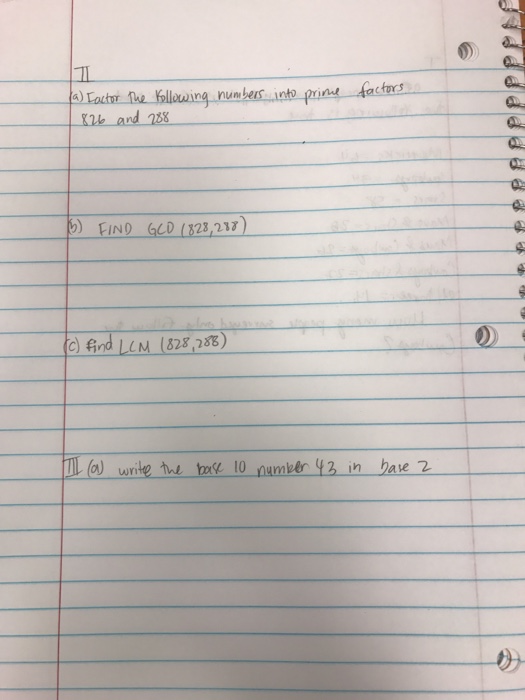 II
(a) Factor The Following numbers into prime factors
826 and 288
(b) FIND GCD (828,288)
(c) find LCM (828,288)
III (a) write the base 10 number 43 in base 2